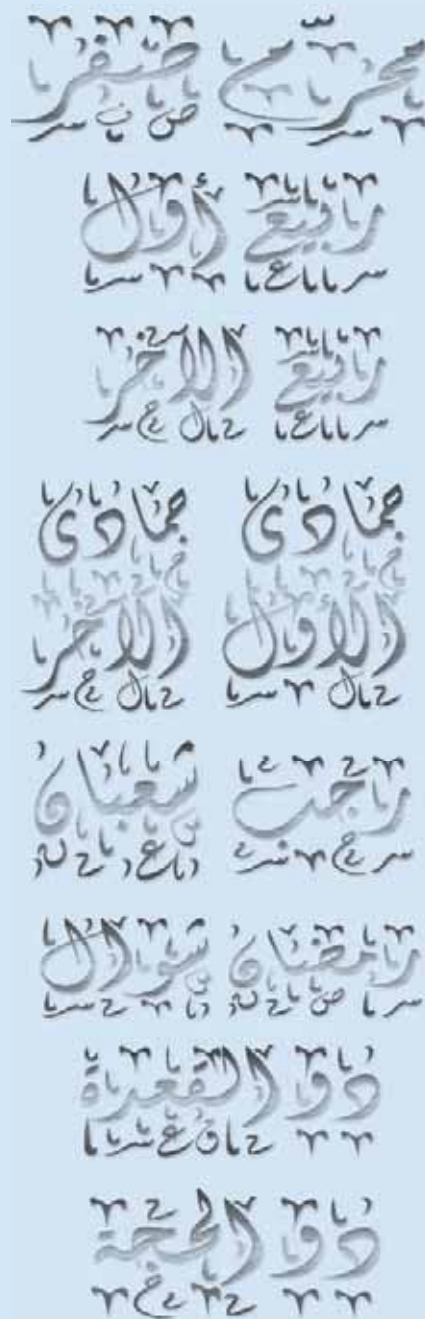 محرم صفر
ربيع أول
ربيع الآخر
جمادى جمادى
الأول الآخر
رجب شعبان
رمضان شوال
ذو القعدة
ذو الحجة